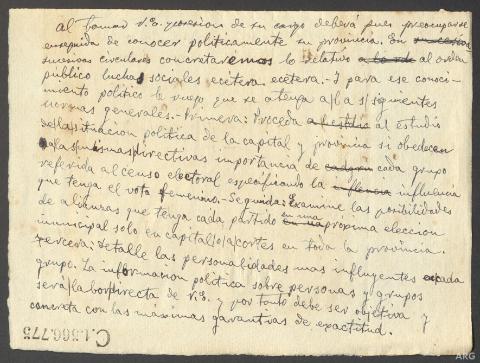 Al tomar v.S. posesion de su cargo deberá pues preocuparse
enseguida de conocer politicamente su provincia. En
sucesivas circulares concretaremos lo relativo al orden
público luchas sociales ecétera ecetera.- Y para ese conoci-
miento politico le ruego, que se atenga a/l a s/ siguientes
normas generales.- Primera: Proceda al estudio
de/la/situacion politica de la capital y provincia si obedecen
a la s/mismas/directivas importancia de cada grupo
referida al censo electoral especificando la influencia
que tenga el voto femenino.- Segunda: Examine las posibilidades
de alianzas que tenga cada partido en una próxima eleccion
municipal solo en capital/o/a/cortes en toda la provincia.
Tercera: detalle las personalidades mas influyentes cada
grupo. La informacion politica sobre personas y grupos
será/la bor/directa de v.S. y por tanto debe ser objetiva y
concreta con las máximas garantias de exactitud.
C.1.566.775
ARG